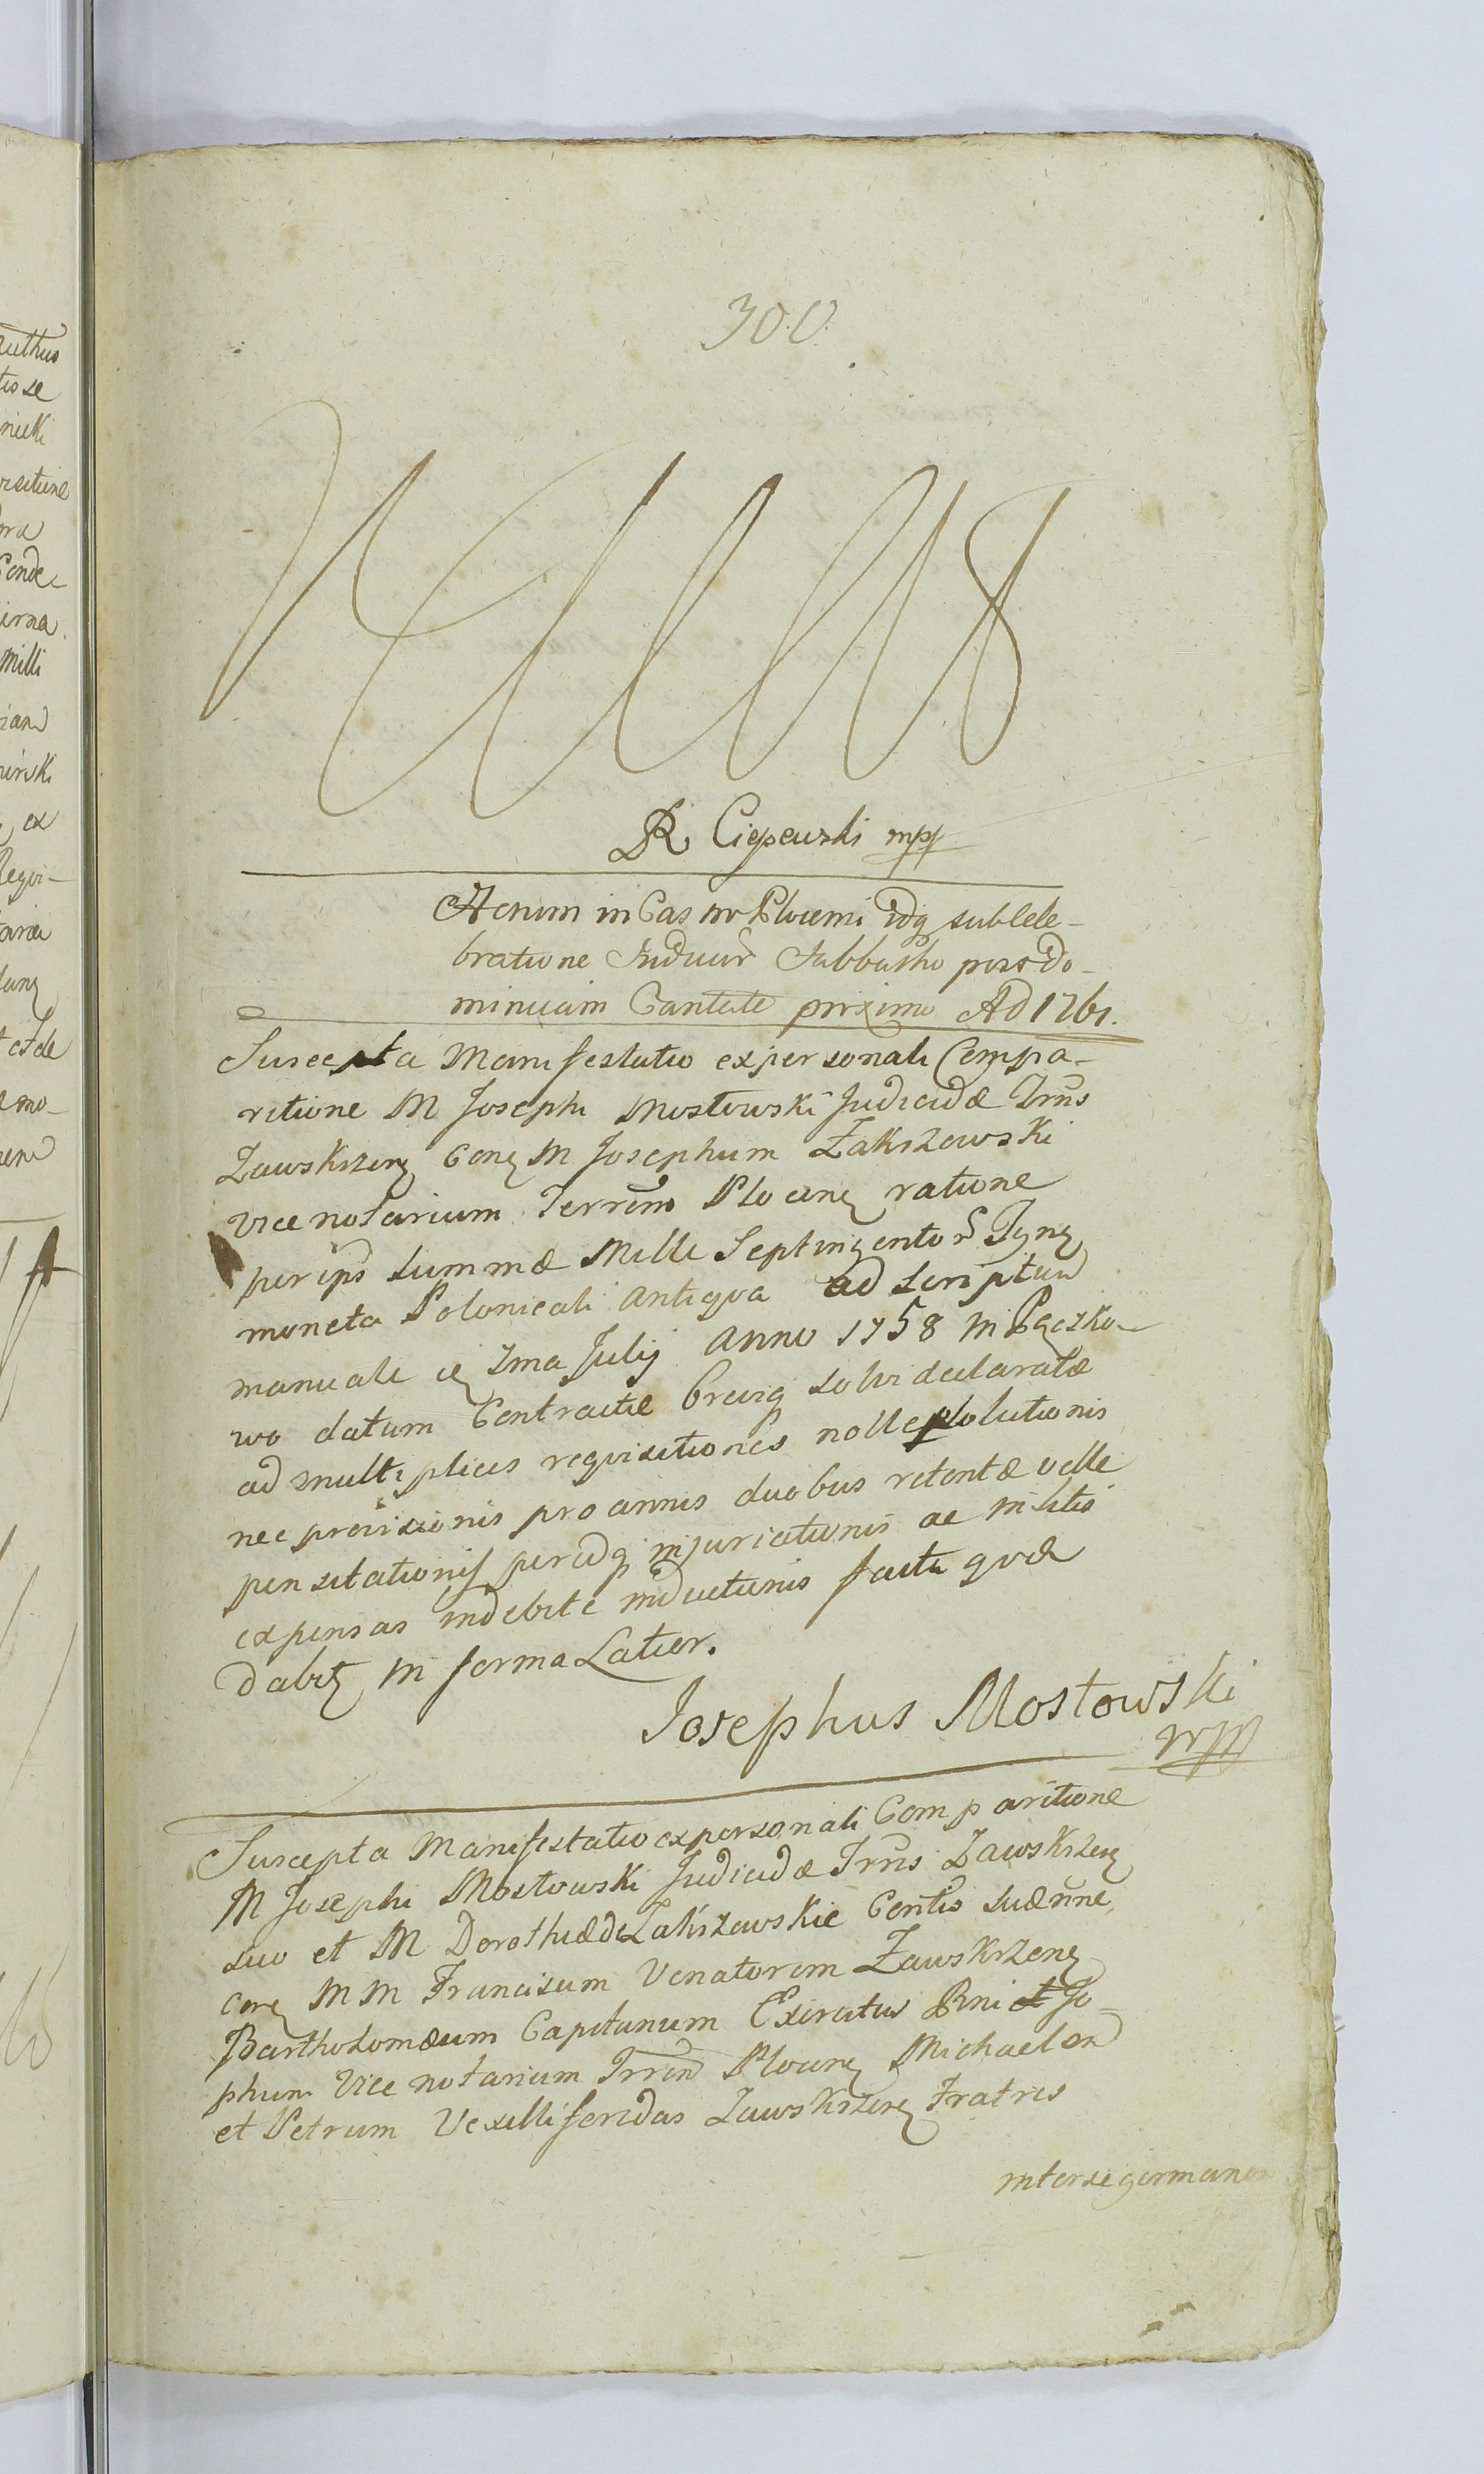 300.
R Ciepewski mpp
Actum in Castro Plocensi idq sub Cele-
bratione Induciar Sabbatho post do-
minicam Cantate proximo AD 1761.
Suscepta Manifestatio ex personali Compa-
ritione M Josephi Mostowski Judicidæ Trrus
Zawskrzenꝫ Conꝫ M Josephum Zakrzewski
vice notarium Terrem Plocenꝫ ratione
per ips summæ Mille Septingentor Tynꝫ
moneta Polonicali antiqva ad scriptum
manuale 1ma Julij Anno 1758 in Pęczko-
wo datum Contractæ breviq solvi declaratæ
ad multiplices reqvisitiones nolle solutionis
nec provisionis pro annis duobus retentæ velle
pensitationis peridq injuriationis ac in litis
expensas indebite inductionis facta qvæ
dabitꝫ in forma Latior.
Josephus Mostowski
mpp
Suscepta Manifestatio ex personali Comparitione
M Josephi Mostowski Judicidæ Trrus Zawskrzenꝫ
suo et M Dorothæ de Zakrzewskie Contis suæ nne
Conꝫ MM Franciscum Venatorem Zawskrzenꝫ
Bartholomæum Capitanum Exercitus Rni et Jo-
phum Vice notarium Trren Plocenꝫ Michaelem
et Petrum Vexilliferidas Zawskrzenꝫ Fratres
inter se germanos